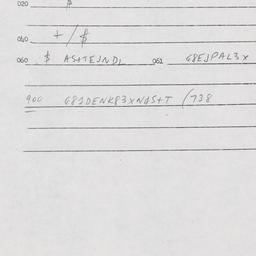 020 $
040 + / $
060 $ AS+TEJNDL 061 G8EJPAL3x
900 G81DENK83xNdS+T /738